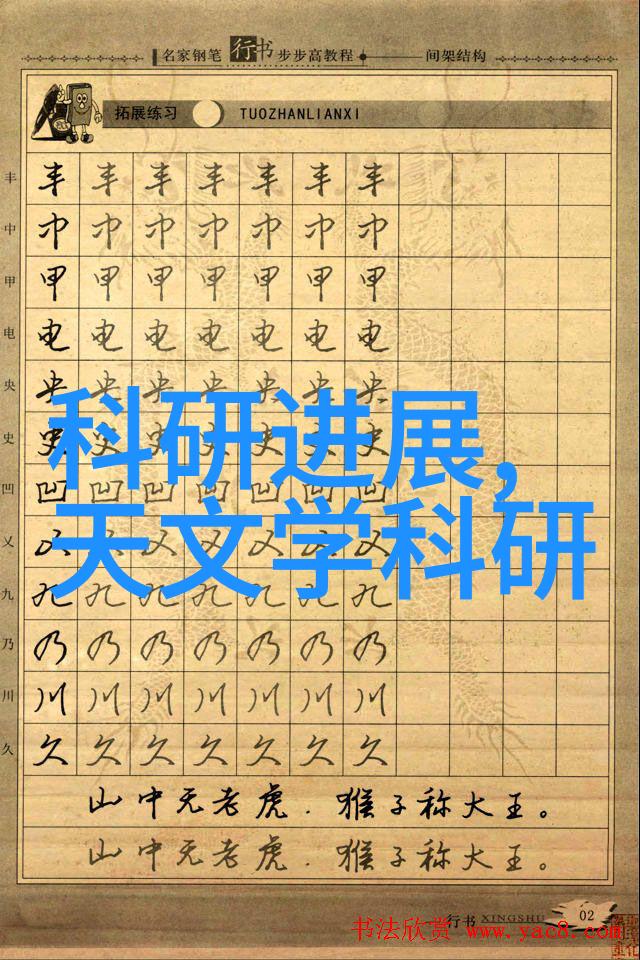 名家钢笔行书步步高教程 间架结构
拓展练习 TUOZHANLIANXI
丰 丰 丰 丰 丰 丰 丰 丰
中 中 中 中 中 中 中 中
甲 甲 甲 甲 甲 甲 甲 甲
电 电 电 电 电 电 电 电
央 央 央 央 央 央 央 央
史 史 史 史 史 史 史 史
科研进展,
凹 凹 凹 凹 凹 凹 凹 凹
天文学科研
乂 乂 乂 乂 乂 乂 乂 乂
九 九 九 九 九 九 九 九
乃 乃 乃 乃 乃 乃 乃 乃
川 川 川 川 川 川 川 川
久 久 久 久 久 久 久 久
山中无老虎.猴子称大王。
山中无老虎.猴子称大王。
行书 XINGSHU 02
书法欣赏 www.yac8.com